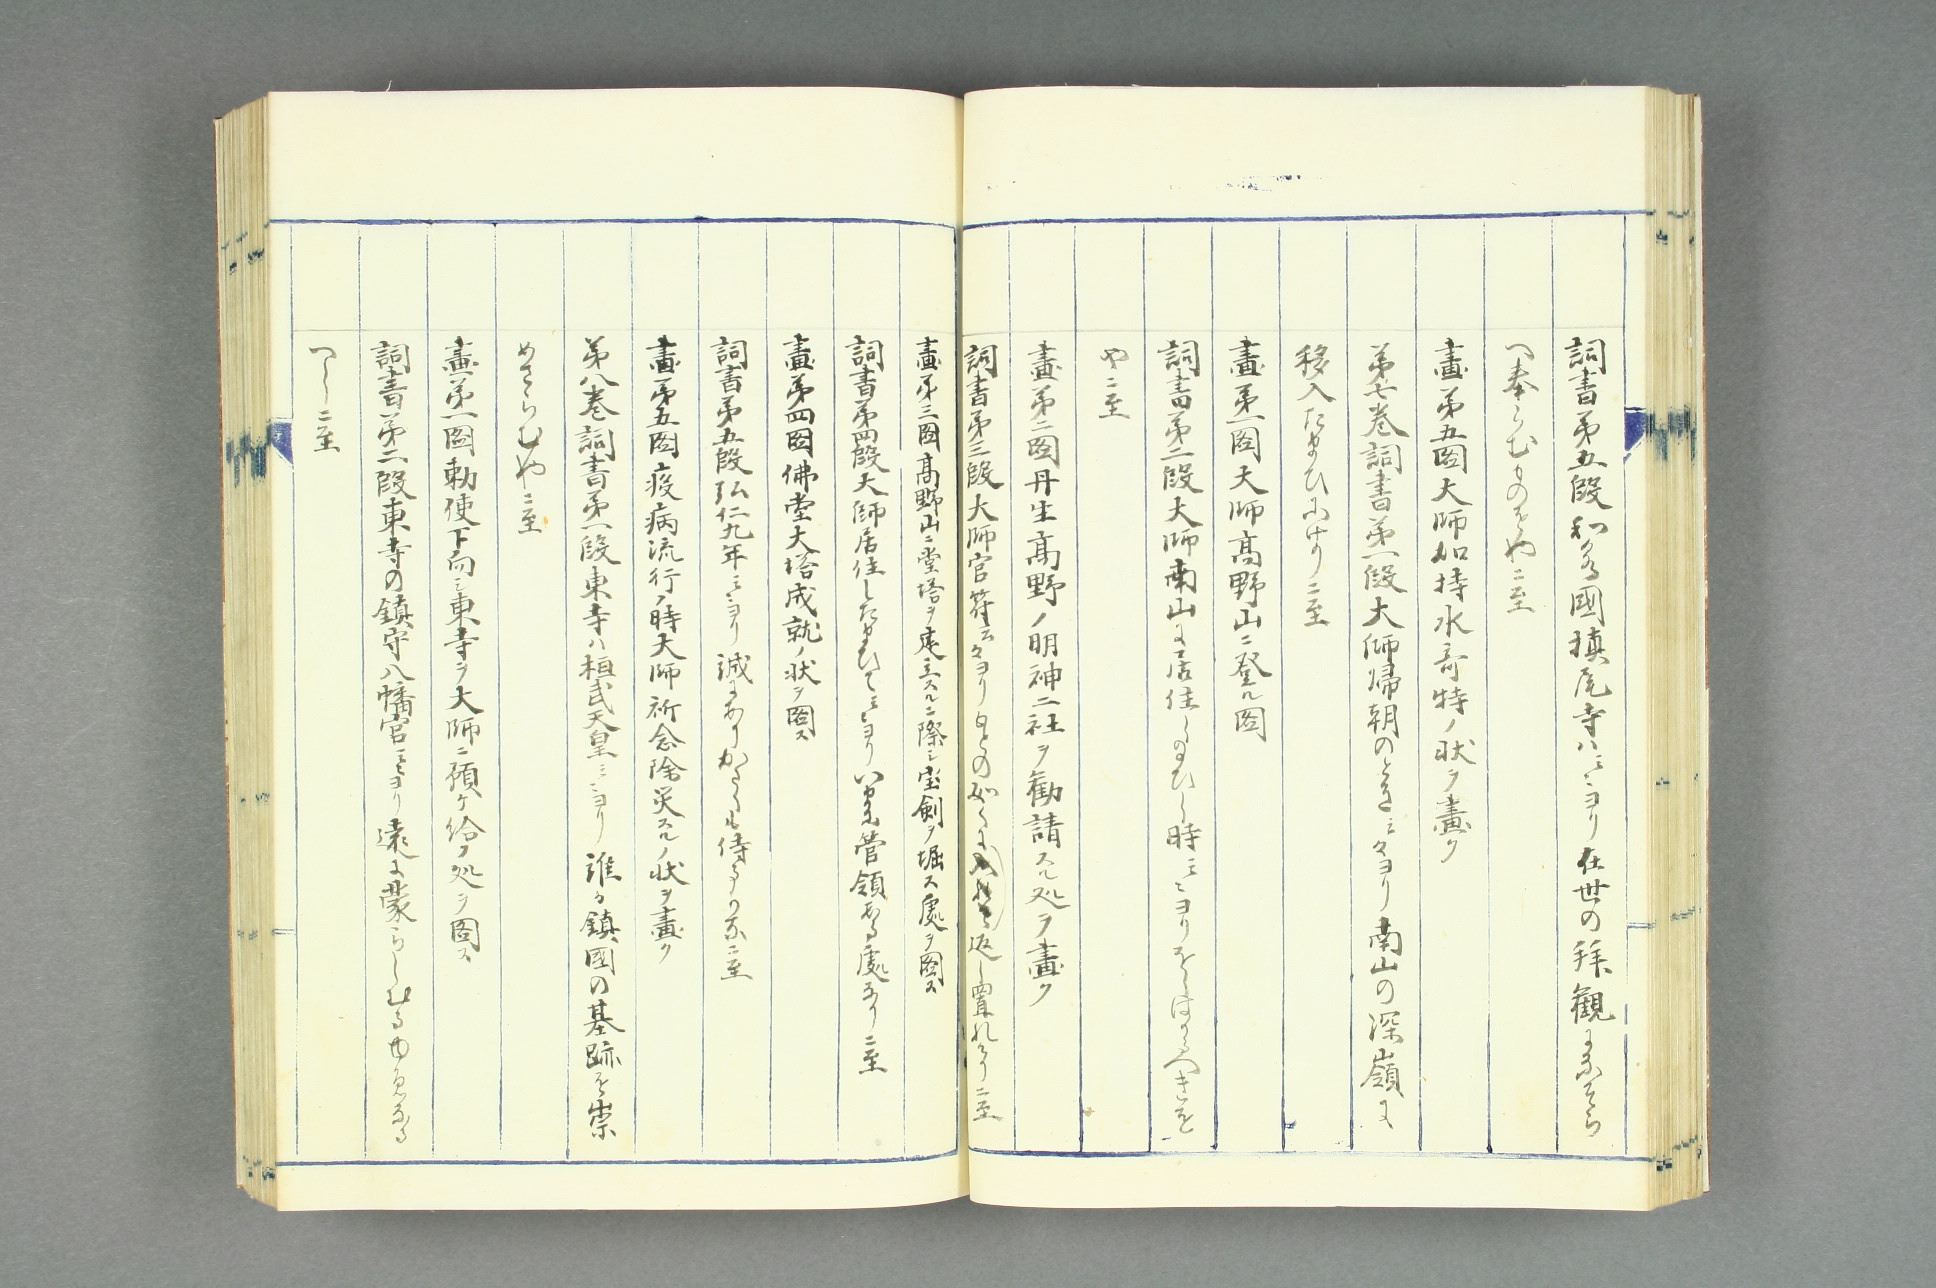 詞書第五段和泉國槙尾寺ハ云々ヨリ在世の拜觀になそら
へ奉らむものをやニ至
畫第五圖大師加持水奇特ノ狀ヲ畫ク
第七卷詞書第一段大師歸朝のとき云々ヨリ南山の深嶺に
移入たまひにけりニ至
畫第一圖大師高野山ニ登ル圖
詞書第二段大師南山に居住し給ひし時云々ヨリをしはかるへきを
やニ至
畫第二圖丹生高野ノ明神二社ヲ勸請スル処ヲ畫ク
詞書第三段大師官符云々ヨリもとの如くに返し置れけりニ至
畫第三圖高野山ニ堂塔ヲ建立スルニ際シ宝劍ヲ堀ス處ヲ圖ス
詞書第四段大師居住したまひて云々ヨリいまに管領ある處なりニ至
畫第四圖佛堂大塔成就ノ狀ヲ圖ス
詞書第五段弘仁九年云々ヨリ誠にありかたくも侍るものかなニ至
畫第五圖疫病流行ノ時大師祈念除災スルノ狀ヲ畫ク
第八卷詞書第一段東寺ハ桓武天皇云々ヨリ誰か鎮國の基跡を崇
めさらむやニ至
畫第一圖勅使下向シ東寺ヲ大師ニ預ケ給フ処ヲ圖ス
詞書第二段東寺の鎮守八幡宮云々ヨリ遠に蒙らしむるゆゑなる
へしニ至